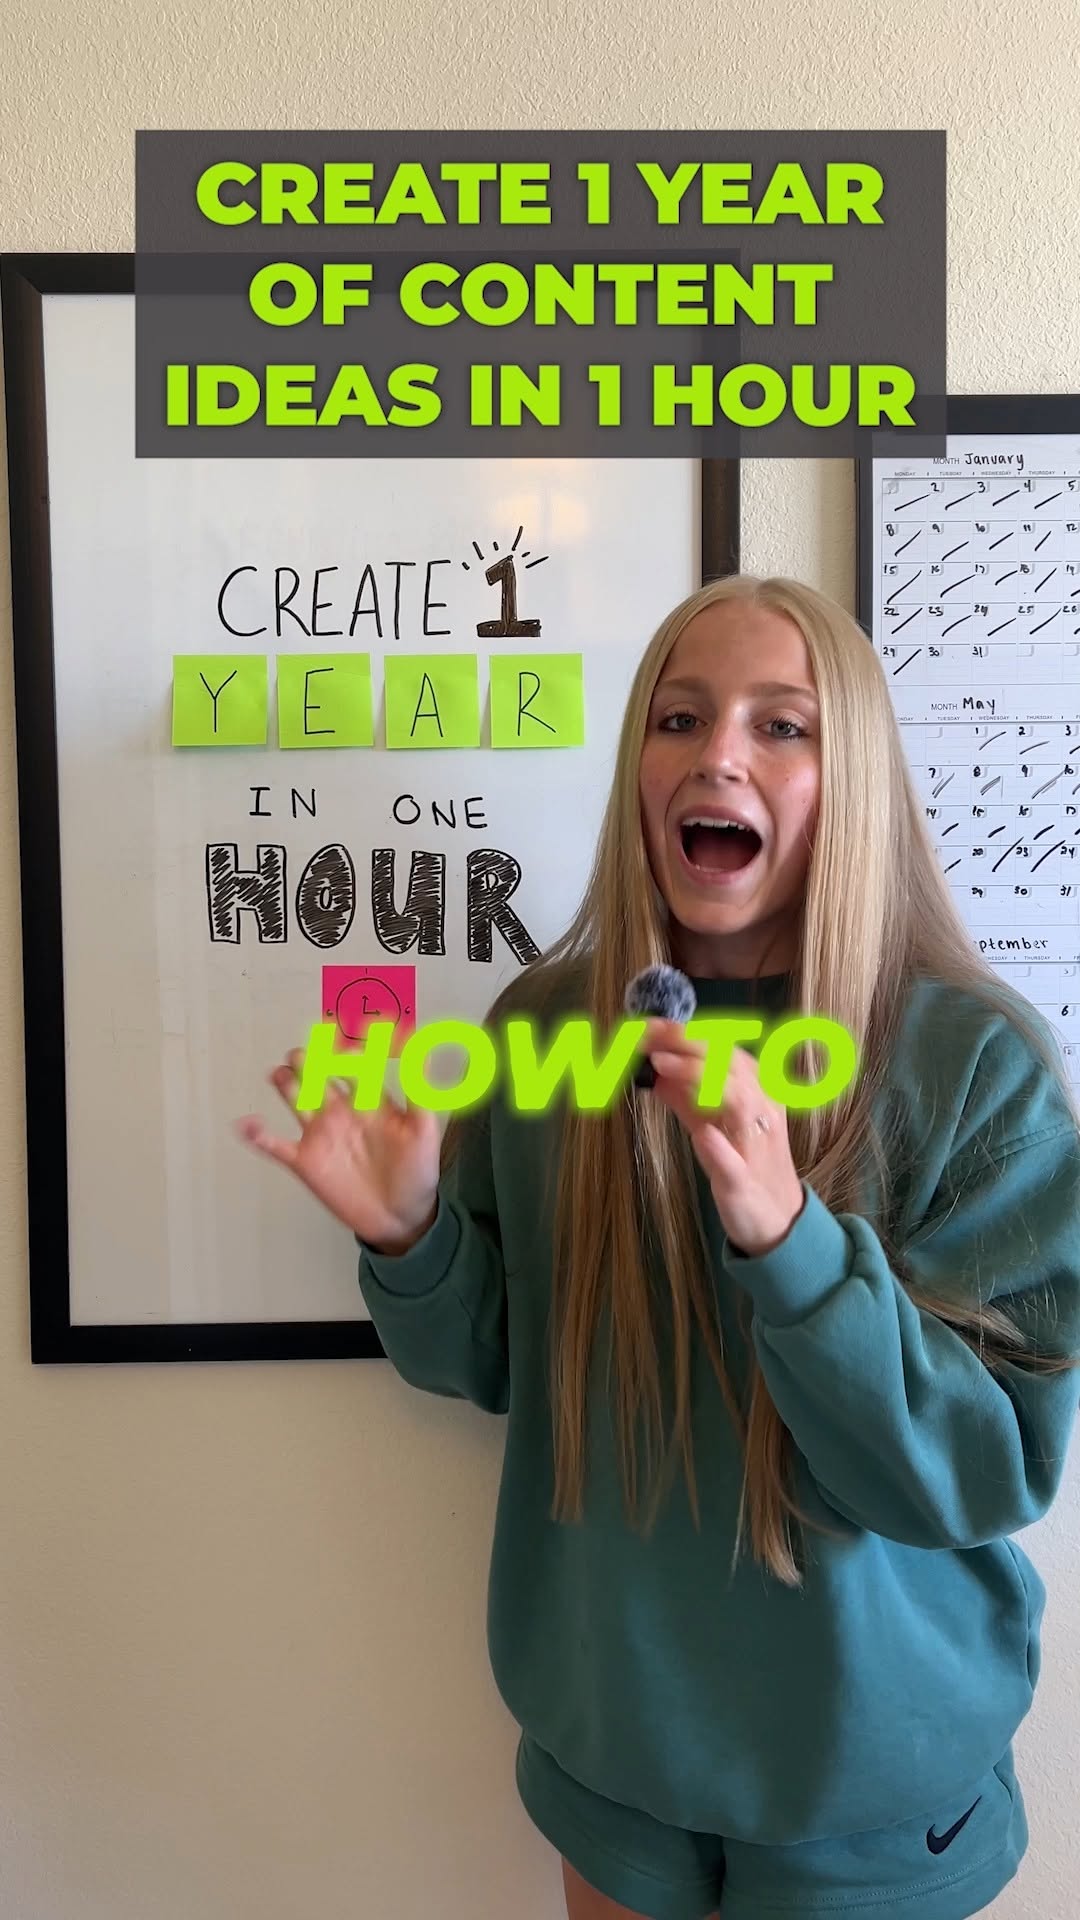 CREATE 1 YEAR
OF CONTENT
IDEAS IN 1 HOUR
CREATE 1
YEAR
IN ONE
HOUR
HOW TO
MONTH January
MONDAY TUESDAY WEDNESDAY THURSDAY
2 3 4 5
8 9 10 11 12
15 16 17 18 19
22 23 24 25 26
29 30 31
MONTH May
TUESDAY WEDNESDAY THURSDAY
1 2 3
7 8 9 10
14 15 16 17
22 23 24
29 30 31
ptember
6